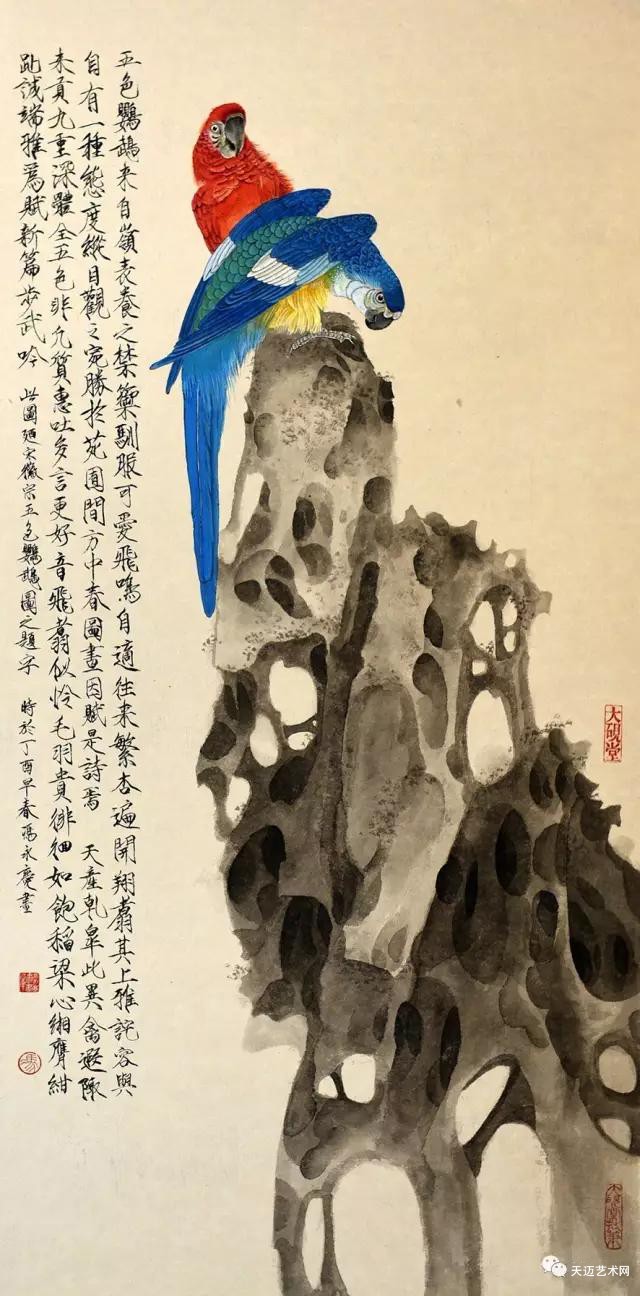 五色鸚鵡来自嶺表養之禁籞馴服可愛飛鳴自適往来繁杏遍開翔翥其上雅詫容與
自有一種態度縱目觀之宛勝於苑囿間方中春圖畫因賦是詩焉 天産乾皐此異禽遐陬
来貢九重深體全五色非凡質惠吐多言更好音飛翥似怜毛羽貴徘徊如飽稻粱心緗膺紺
趾誠端雅爲賦新篇步武吟 此圖題宋徽宗五色鸚鵡圖之題字 時於丁酉早春馮永慶畫
大硯堂
馮
天迈艺术网